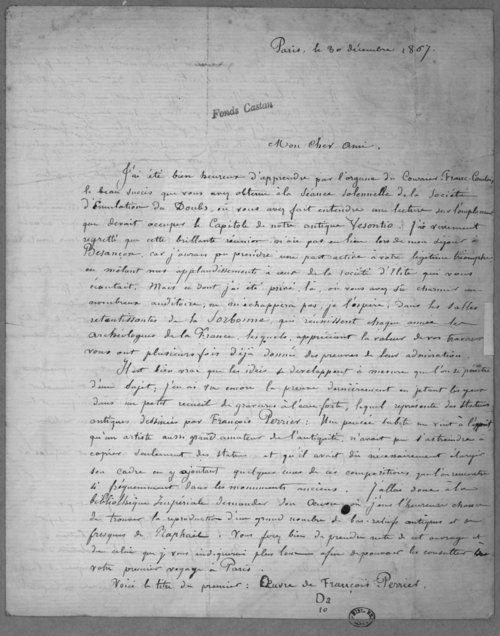 Paris, le 30 décembre 1867.
Fonds Castan
Mon Cher Ami,
J'ai été bien heureux d'apprendre par l'organe du Courrier Franc-Comtois,
le beau succès que vous avez obtenu à la séance solennelle de la Société
d'Emulation du Doubs, où vous avez fait entendre une lecture sur l'emplacement
que devait occuper le Capitole de notre antique Vesontio. J'ai vivement
regretté que cette brillante réunion n'aie pas eu lieu lors de mon séjour à
Besançon, car j'aurais pu prendre une part active à votre légitime triomphe
en mêlant mes applaudissements à ceux de la société d'élite qui vous
écoutait. Mais ce dont j'ai été privé là, où vous avez su charmer un
nombreux auditoire, ne m'échappera pas, je l'espère, dans les salles
retentissantes de la Sorbonne, qui réunissent chaque année les
archéologues de la France, lesquels, appréciant la valeur de vos travaux
vous ont plusieurs fois déjà donné des preuves de leur admiration.
Il est bien vrai que les idées se developpent à mesure que l'on se pénètre
d'un sujet; j'en ai eu encore la preuve dernièrement en jetant les yeux
dans un petit recueil de gravures à l'eau forte, lequel représente des statues
antiques dessinées par François Perrier: Une pensée subite me vint à l'esprit
qu'un artiste aussi grand amateur de l'antiquité, n'avait pas s'astreindre à
copier seulement des statues et qu'il avait dû nécessairement élargir
son cadre en y ajoutant quelques unes de ces compositions que l'on rencontre
si fréquemment dans les monuments anciens. J'allai donc à la
bibliothèque Impériale demander son Œuvre où j'eus l'heureuse chance
de trouver la reproduction d'un grand nombre de bas-reliefs antiques et de
fresques de Raphaël: Vous ferez bien de prendre note de cet ouvrage et
de celui que je vous indiquerai plus loin afin de pouvoir les consulter à
votre premier voyage à Paris.
Voici le titre du premier: Œuvre de François Perrier.
Da
10